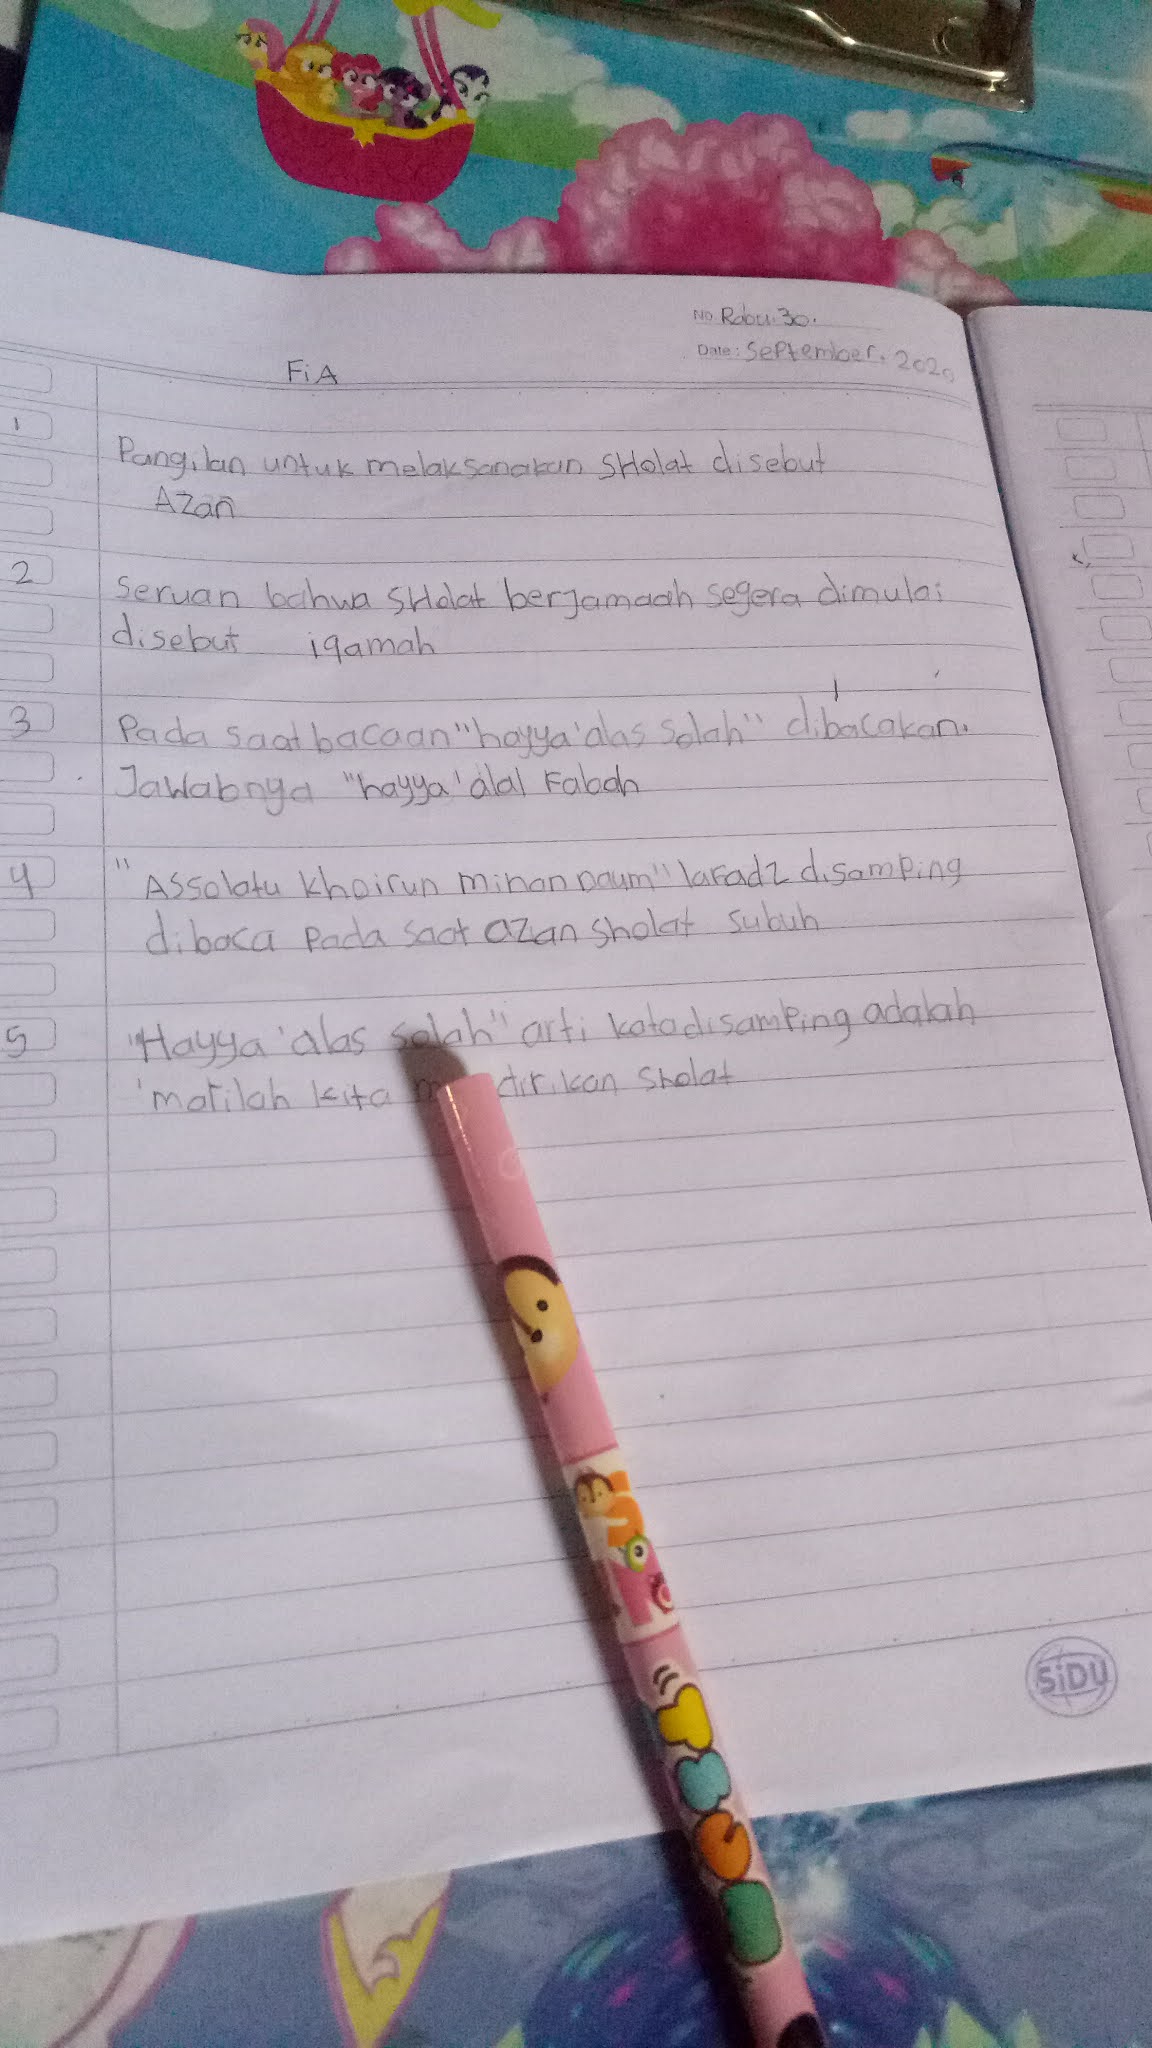 No. Rabu. 30.
Date: September. 2020
FiA
1
Pangilan untuk melaksanakan SHolat disebut
AZan
2
Seruan bahwa SHolat berjamaah segera dimulai
disebut iqamah
3
Pada saat bacaan "hayya 'alas solah" dibacakan.
Jawabnya "hayya 'alal Fabah
4
"Assolatu khoirun minan naum" laFadz disamping
dibaca Pada saat azan sholat subuh
5
"Hayya 'alas solah" arti kata disamping adalah
'marilah kita dirikan Sholat
SiDU